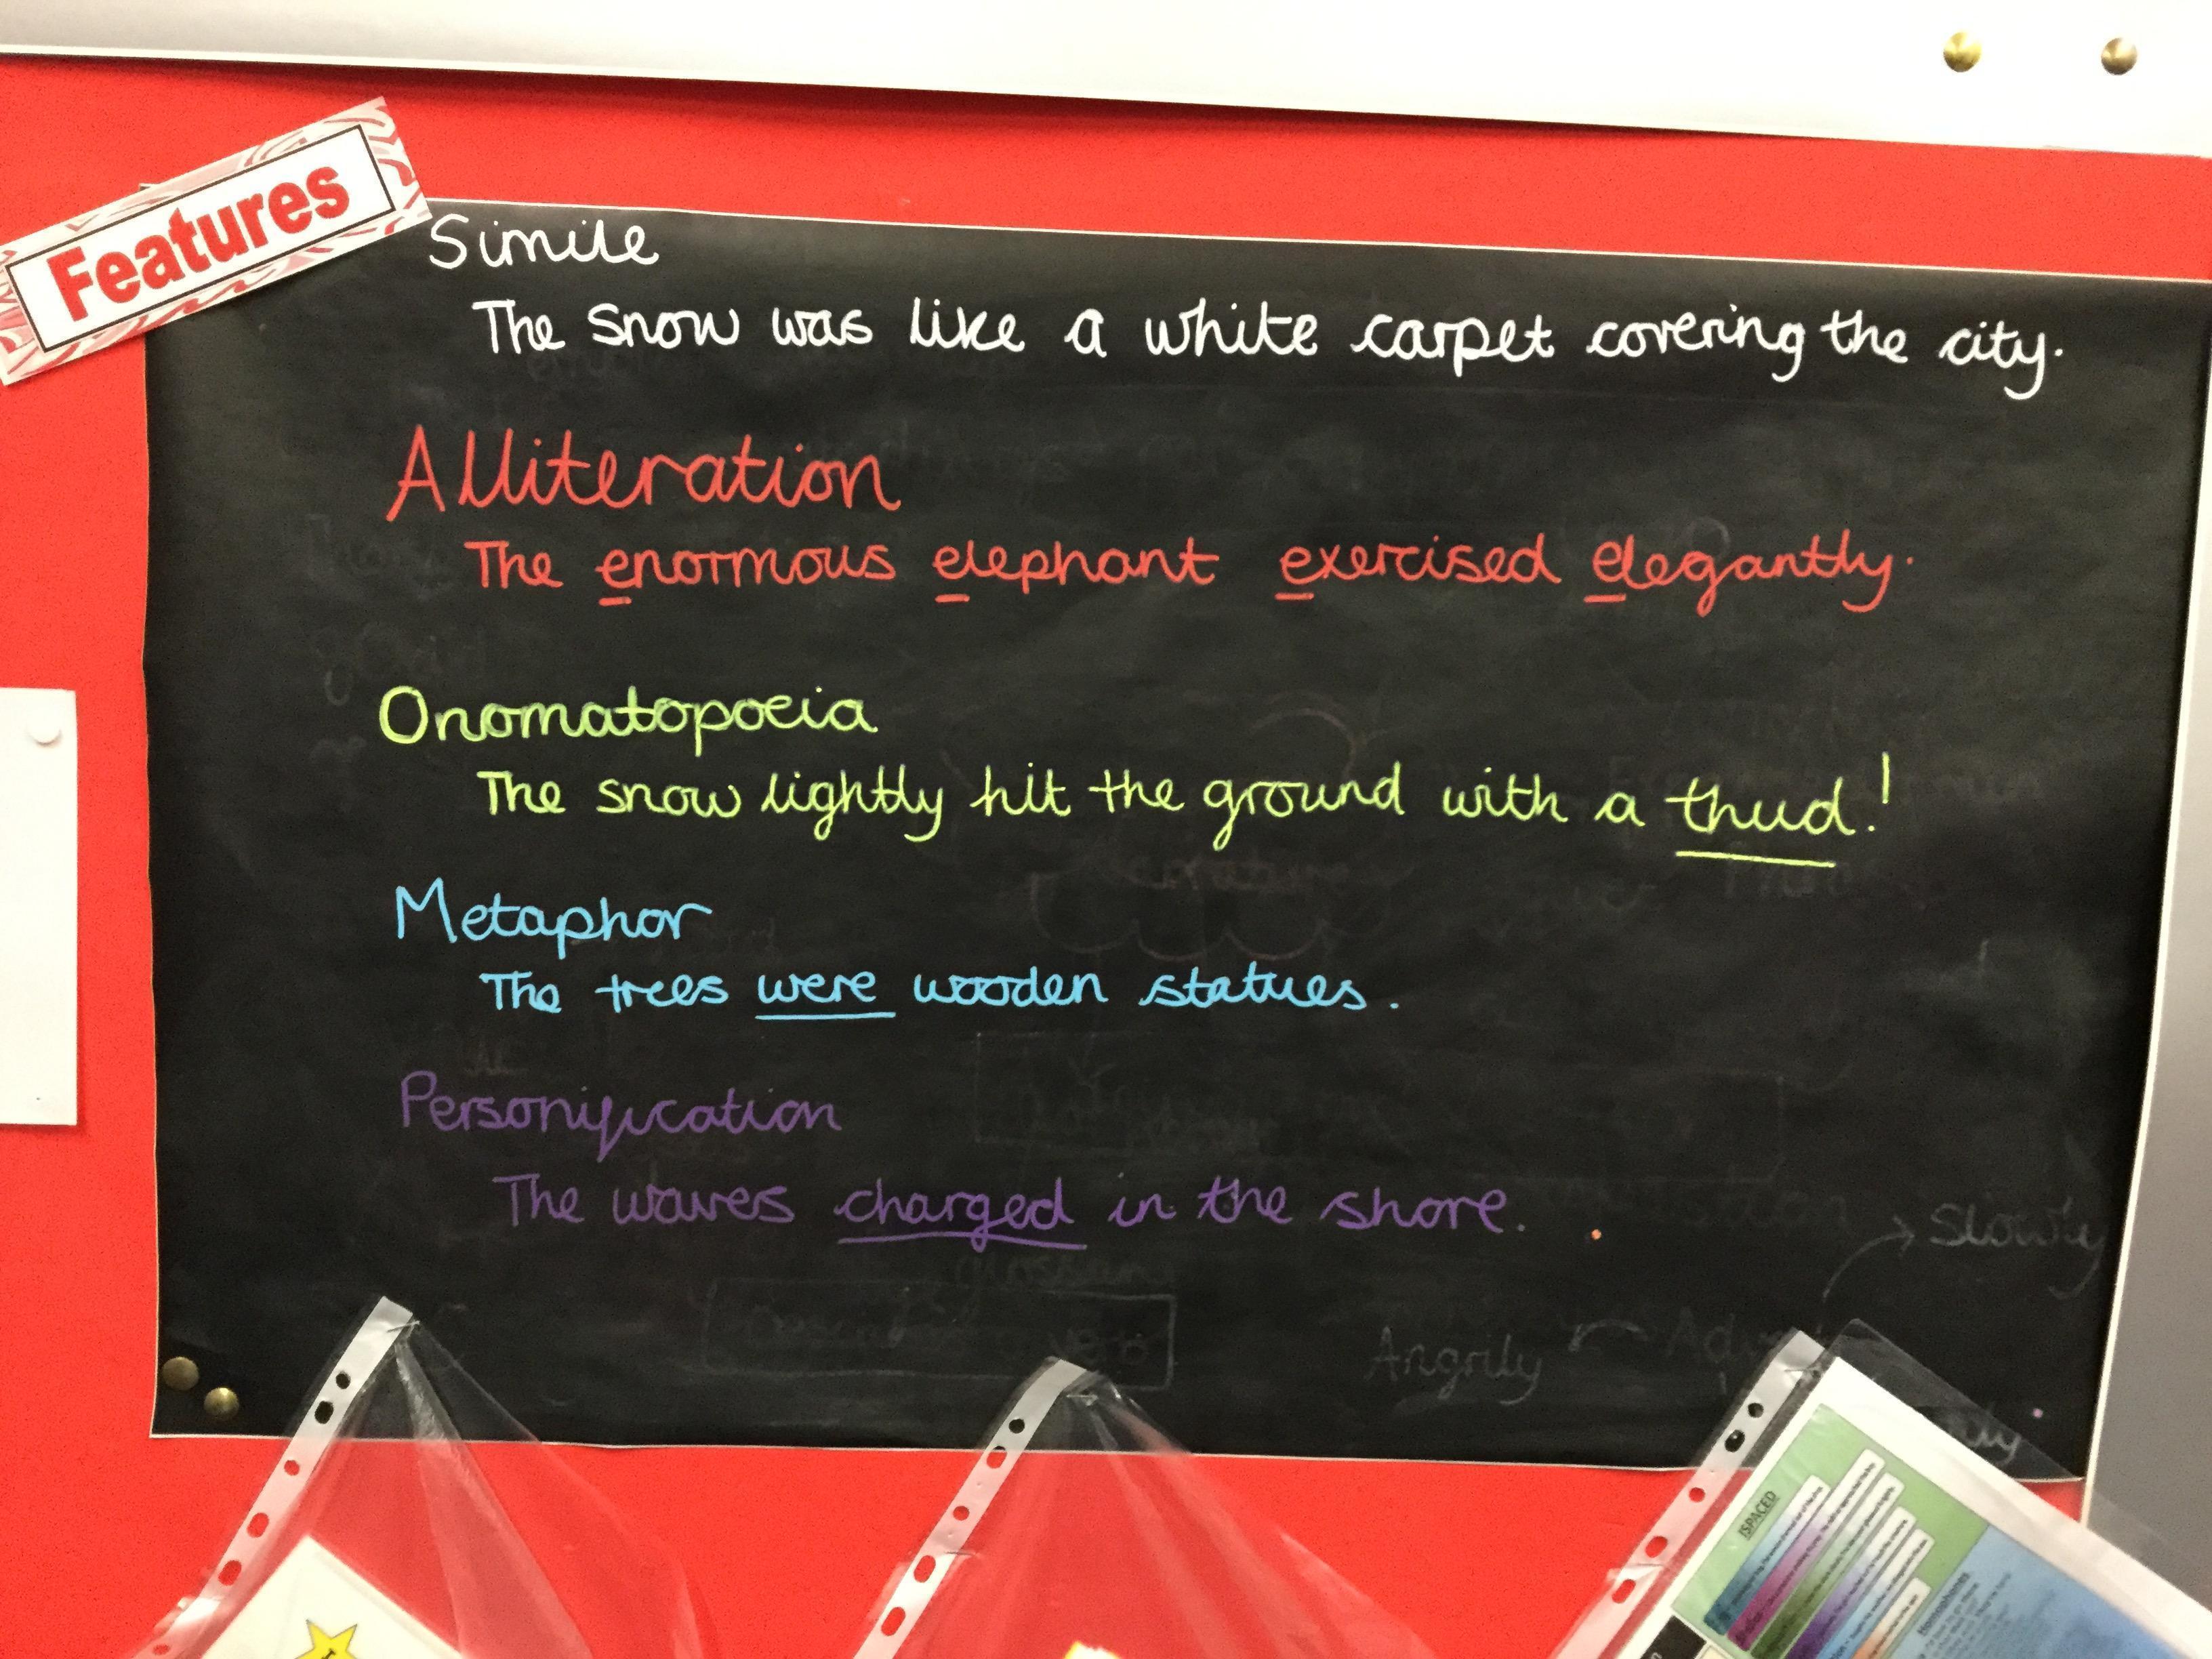 Features
Simile
The snow was like a white carpet covering the city.
Alliteration
The enormous elephant exercised elegantly.
Onomatopoeia
The snow lightly hit the ground with a thud!
Metaphor
The trees were wooden statues.
Personification
The waves charged in the shore.
Slowly
Angrily
ISPACED
Homophones